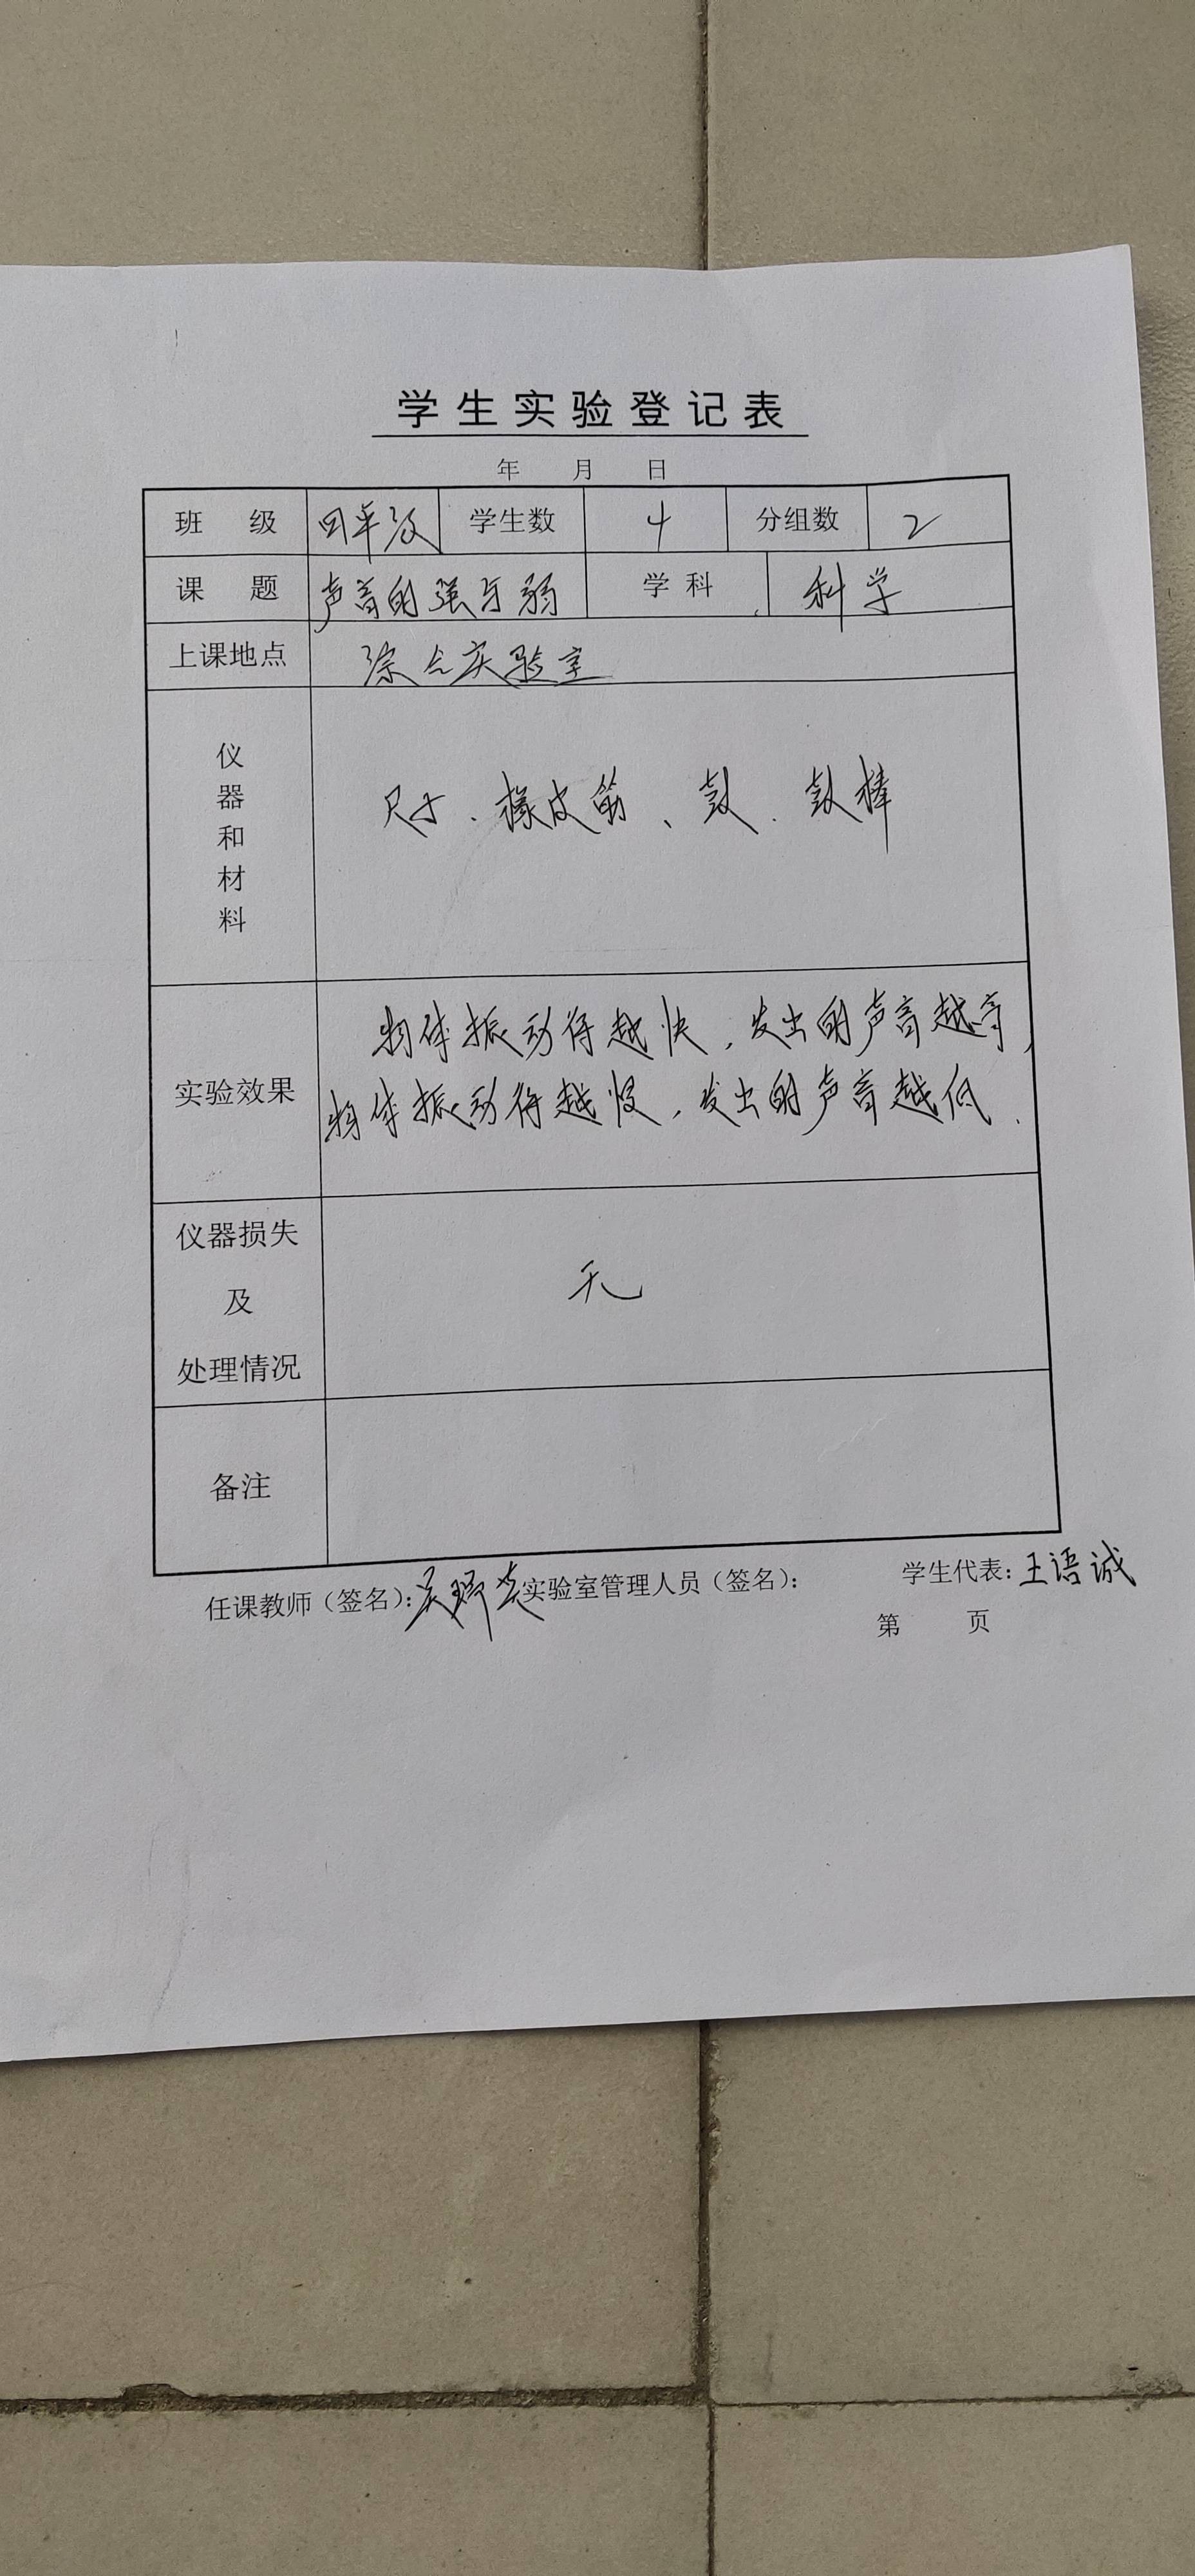 学生实验登记表
年 月 日
班 级 四年级 学生数 4 分组数 2
课 题 声音的强与弱 学 科 科学
上课地点 综合实验室
仪器和材料 尺子、橡皮筋、鼓、鼓棒
物体振动得越快,发出的声音越高,
实验效果
物体振动得越慢,发出的声音越低.
仪器损失
及 无
处理情况
备注
任课教师(签名): 实验室管理人员(签名): 学生代表:王语诚
第 页